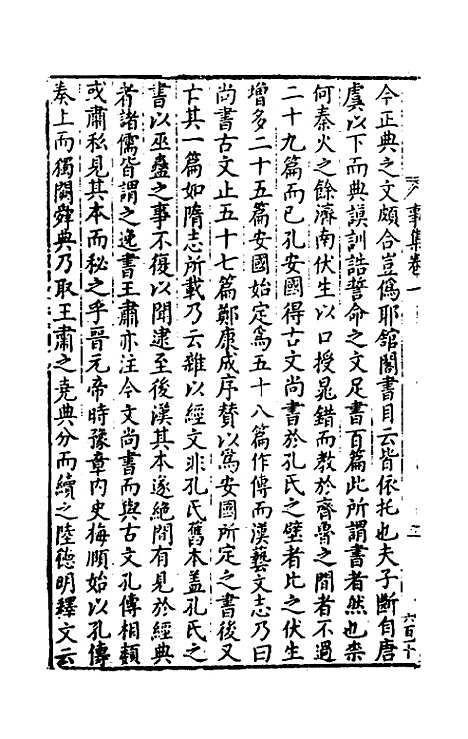 今正典之文頗合豈僞耶館閣書目云皆依托也夫子斷自唐
虞以下而典謨訓誥誓命之文足書百篇此所謂書者然也柰
何秦火之餘濟南伏生以口授晁錯而教於齊魯之間者不過
二十九篇而已孔安國得古文尚書於孔氏之壁者比之伏生
增多二十五篇安國始定爲五十八篇作傳而漢藝文志乃曰
尚書古文止五十七篇鄭康成序賛以爲安國所定之書後又
亡其一篇如隋志所載乃云雜以經文非孔氏舊本盖孔氏之
書以巫蠱之事不復以聞逮至後漢其本遂絶間有見於經典
者諸儒皆謂之逸書王肅亦注今文尚書而與古文孔傳相類
或肅私見其本而秘之乎晉元帝時豫章内史梅頤始以孔傳
奏上而獨闕舜典乃取王肅之堯典分而續之陸德明釋文云
集卷一
六百十